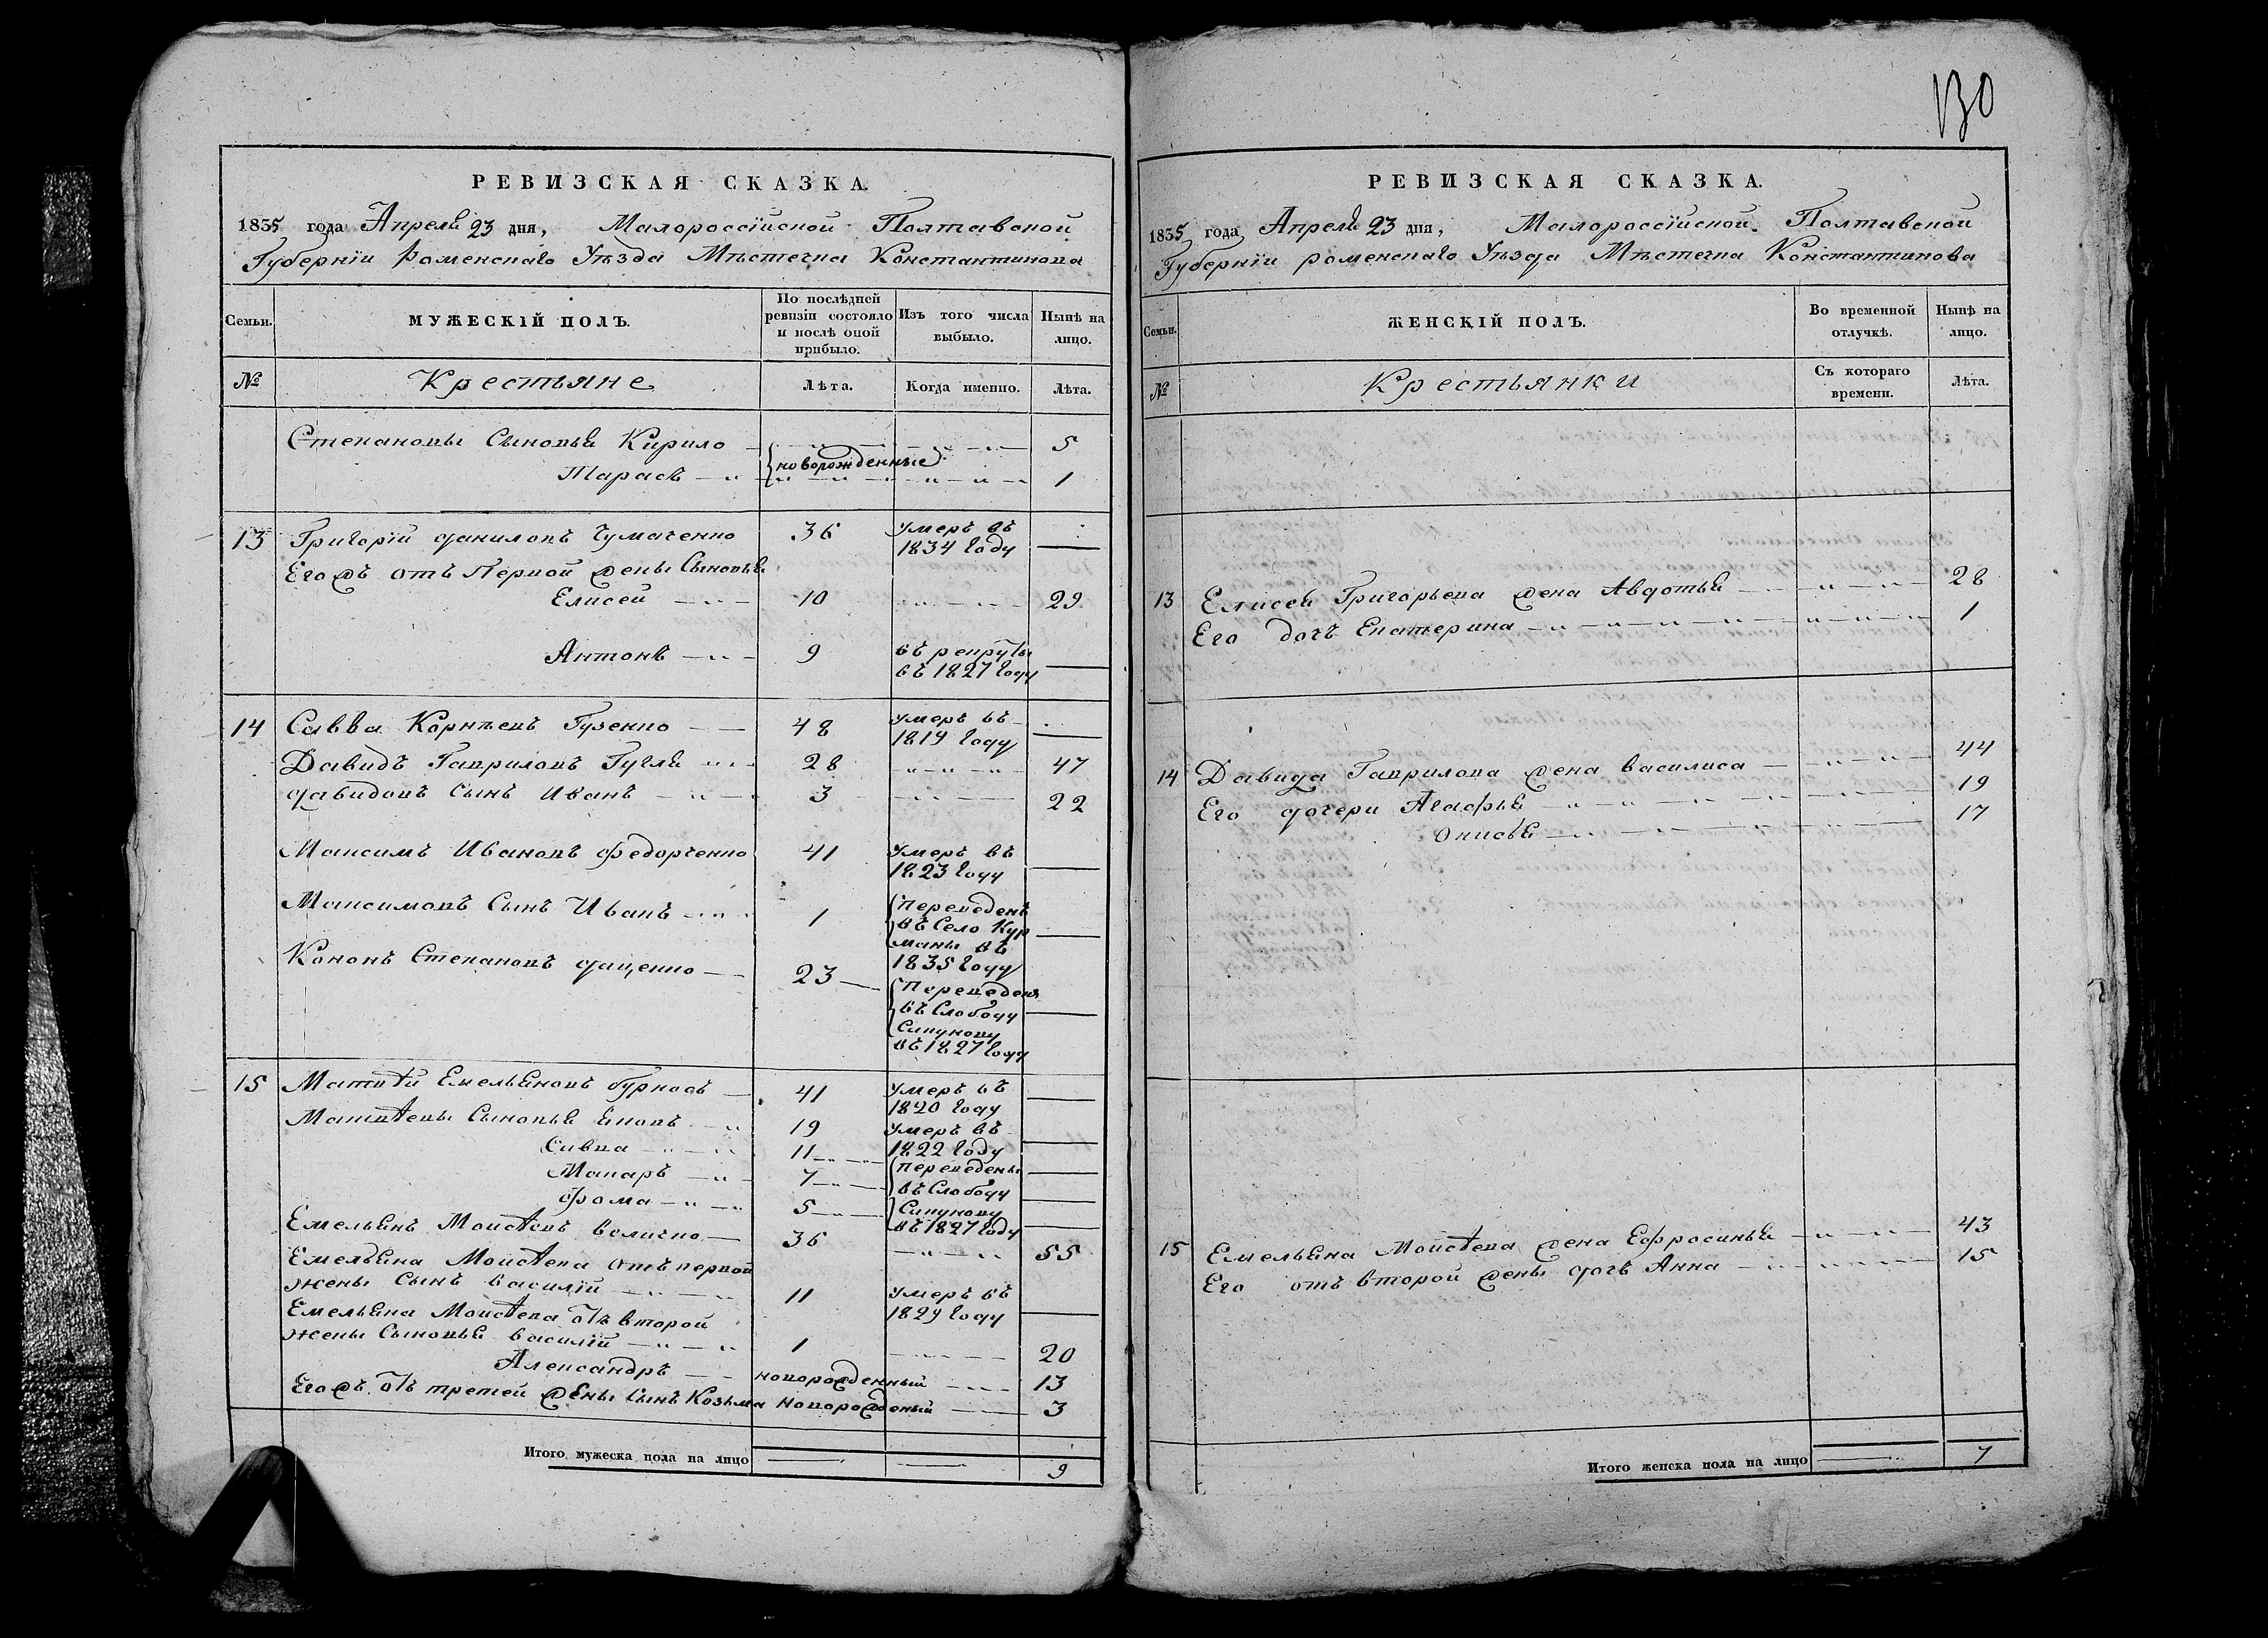 130
РЕВИЗСКАЯ СКАЗКА.
1835 года Апреля 23 дня, Малороссійской Полтавской
Губерніи Роменского Уѣзда Мѣстечка Константинова
Семьи. МУЖЕСКІЙ ПОЛЪ. По послѣдней ревизіи состояло и послѣ оной прибыло. Изъ того числа выбыло. Нынѣ на лицо.
№ Крестьяне Лѣта. Когда именно. Лѣта.
Степановы Сыновья Кирило 5
новорожденные
Тарасъ 1
13 Григорій Даниловъ Чумаченко 36 Умеръ въ 1834 Году
Егожъ отъ Первой жены Сыновья
Елисей 10 29
Антонъ 9 въ рекруты въ 1827 Году
14 Савва Корнѣевъ Гузенко 48 Умеръ въ 1819 Году
Давидъ Гавриловъ Гугля 28 47
Давидовъ Сынъ Иванъ 3 22
Максимъ Ивановъ Федорченко 41 Умеръ въ 1823 Году
Максимовъ Сынъ Иванъ 1 Переведенъ въ Село Курманы въ 1835 Году
Кононъ Степановъ Даценко 23 Переведенъ въ Слободу Сипунову въ 1827 Году
15 Матвѣй Емельяновъ Бурносъ 41 Умеръ въ 1820 Году
Матвѣевы Сыновья Яковъ 19 Умеръ въ 1822 Году
Савва 11
Макаръ 7 Переведены въ Слободу Сипунову въ 1827 Году
Фома 5
Емельянъ Моисѣевъ Величко 36 55
Емельяна Моисѣева отъ первой
жены Сынъ Василій 11 Умеръ въ 1829 Году
Емельяна Моисѣева отъ второй
жены Сыновья Василій 1 20
Александръ новорожденный 13
Егожъ отъ третей жены Сынъ Козьма новорожденый 3
Итого мужеска пола на лицо 9
РЕВИЗСКАЯ СКАЗКА.
1835 года Апреля 23 дня, Малороссійской Полтавской
Губерніи Роменского Уѣзда Мѣстечка Константинова
Семьи. ЖЕНСКІЙ ПОЛЪ. Во временной отлучкѣ. Нынѣ на лицо.
№ Крестьянки Съ котораго времени. Лѣта.
13 Елисея Григорьева жена Авдотья 28
Его дочь Екатерина 1
14 Давида Гаврилова жена Василиса 44
Его дочери Агафья 19
Онисья 17
15 Емельяна Моисѣева жена Ефросинья 43
Его отъ второй жены дочь Анна 15
Итого женска пола на лицо 7